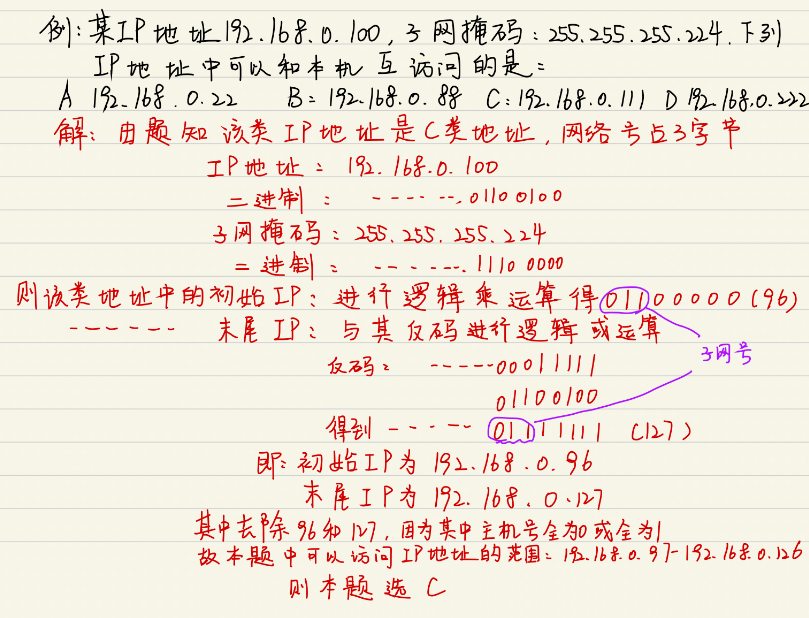 例:某IP地址192.168.0.100,子网掩码:255.255.255.224.下列
IP地址中可以和本机互访问的是:
A 192.168.0.22 B:192.168.0.88 C:192.168.0.111 D 192.168.0.222
解:由题知该类IP地址是C类地址,网络号占3字节
IP地址:192.168.0.100
二进制:------.01100100
子网掩码:255.255.255.224
二进制:------.11100000
则该类地址中的初始IP:进行逻辑乘运算得01100000(96)
------ 末尾IP:与其反码进行逻辑或运算
子网号
反码:-----00011111
01100100
得到-----01111111 (127)
即:初始IP为192.168.0.96
末尾IP为192.168.0.127
其中去除96和127,因为其中主机号全为0或全为1
故本题中可以访问IP地址的范围:192.168.0.97-192.168.0.126
则本题选C